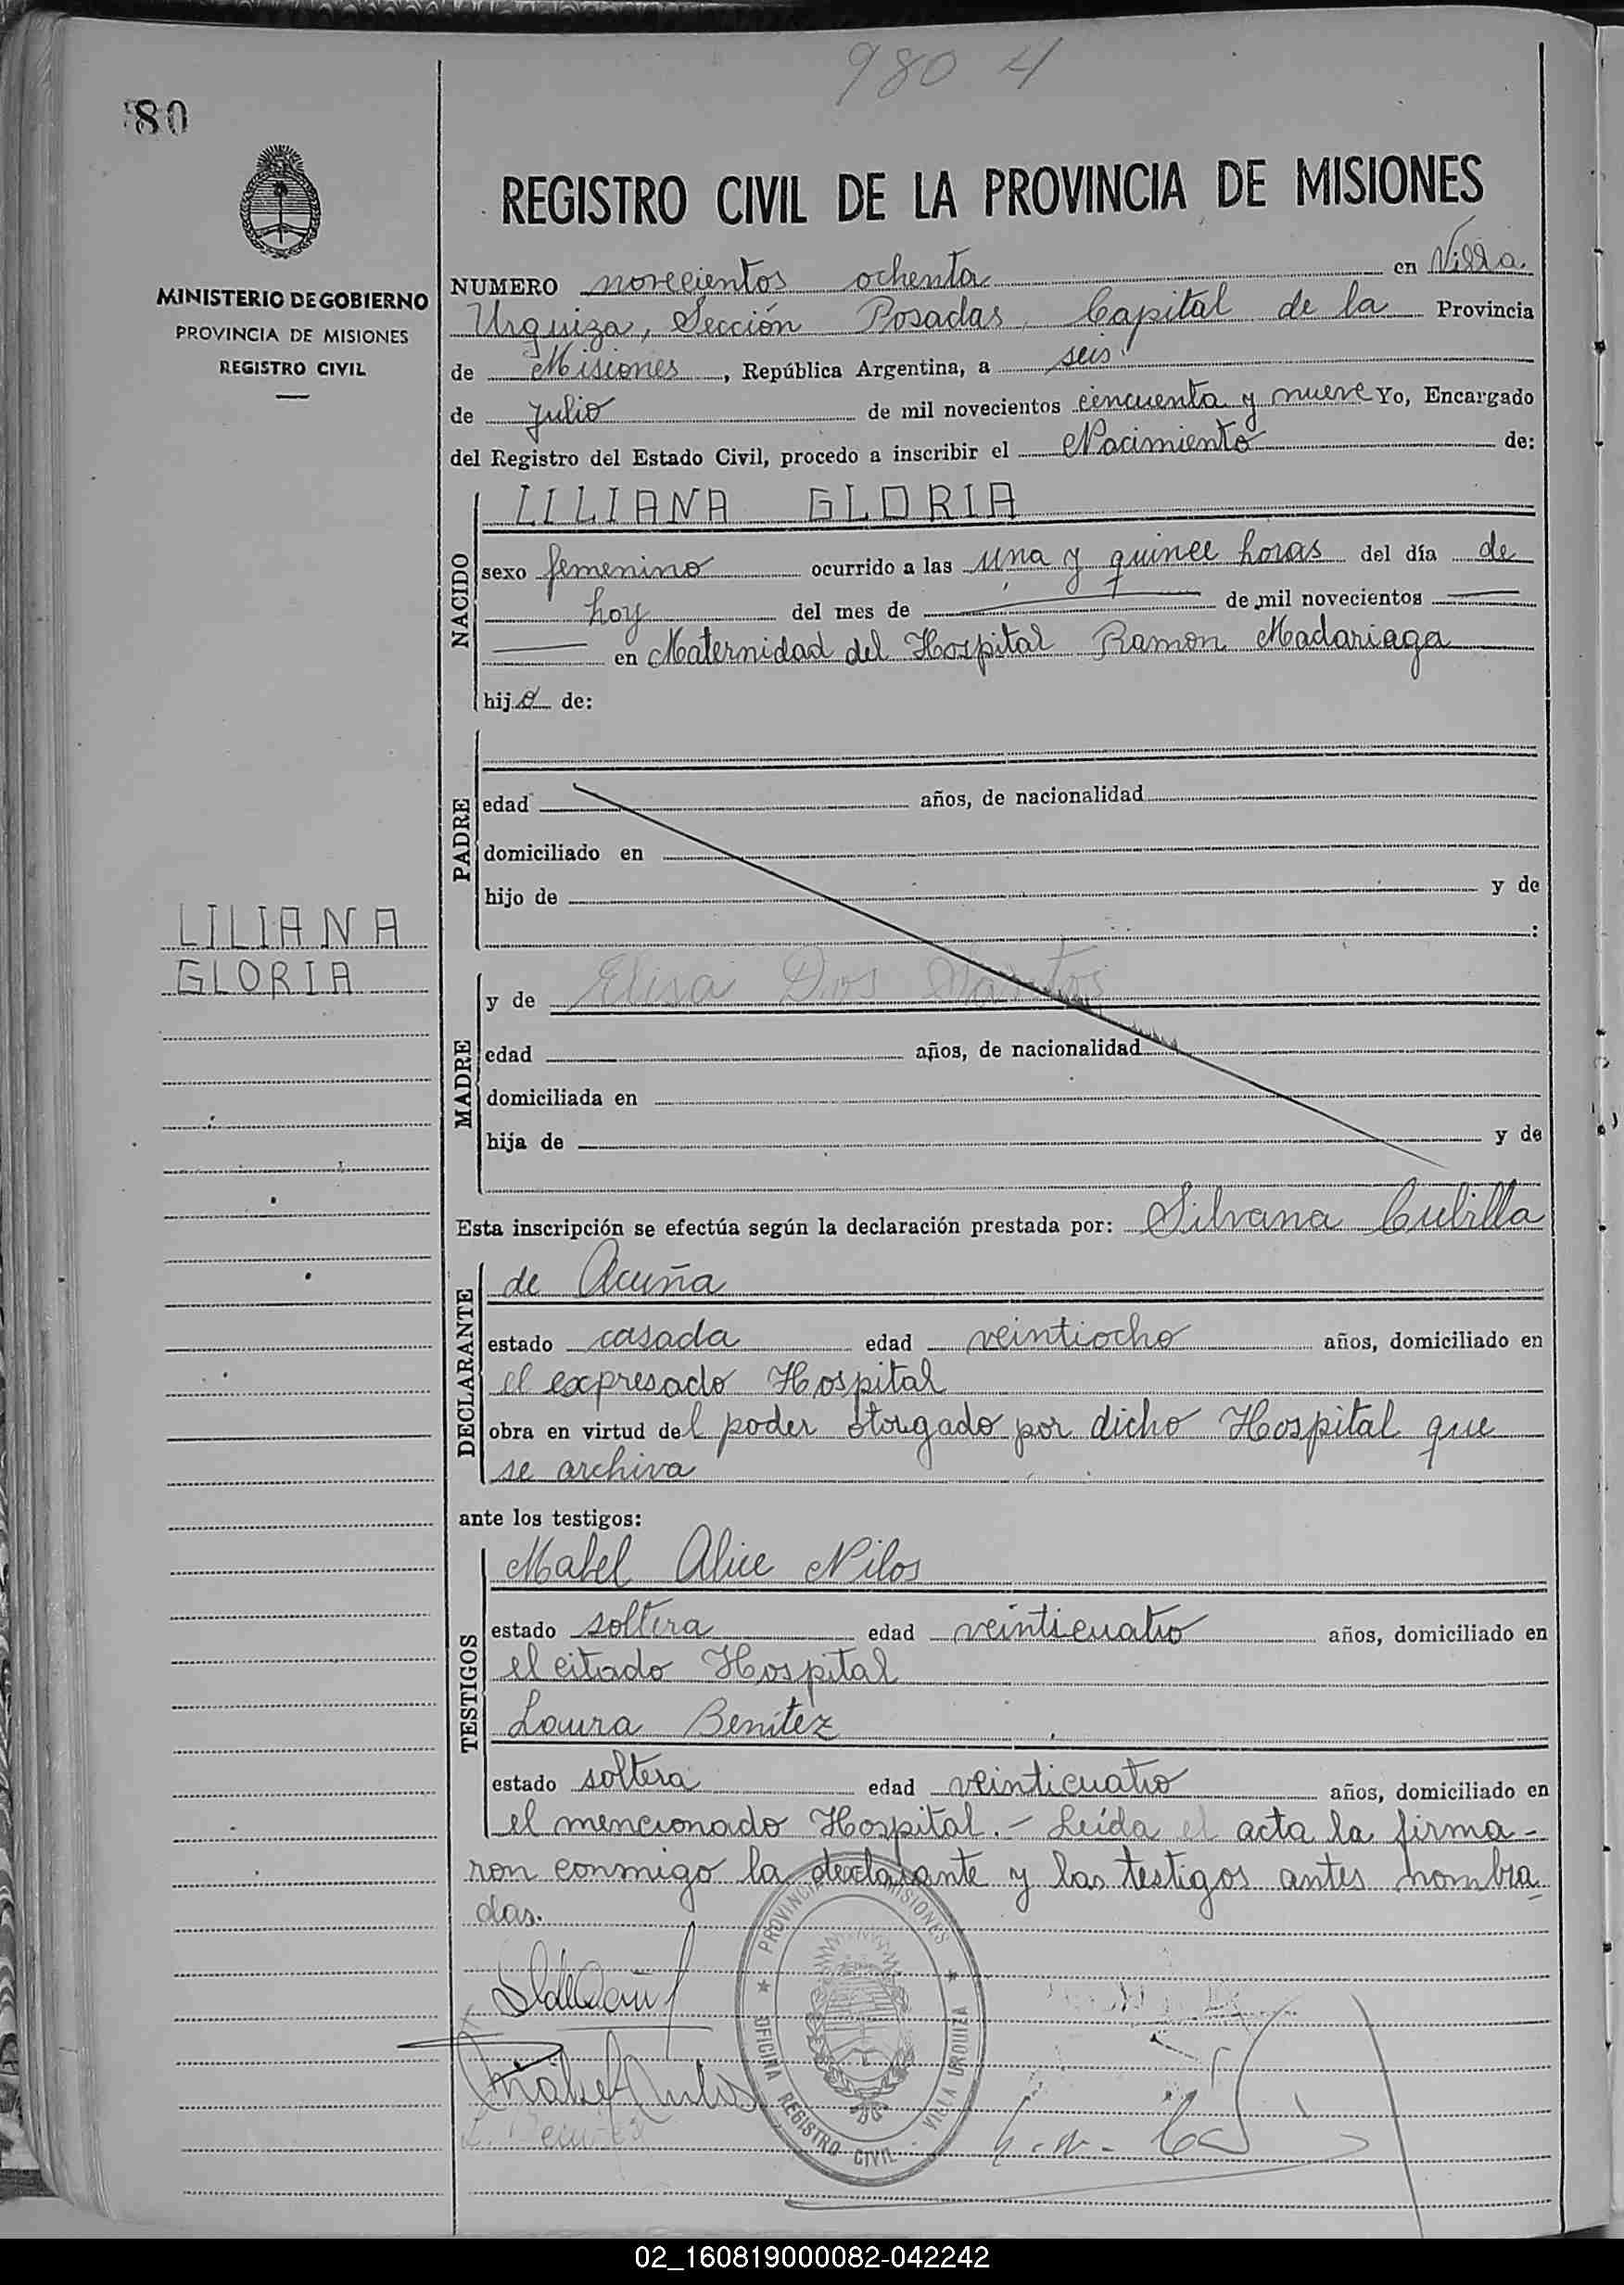 980 4
80
REGISTRO CIVIL DE LA PROVINCIA DE MISIONES
MINISTERIO DE GOBIERNO
PROVINCIA DE MISIONES
REGISTRO CIVIL
NUMERO novecientos ochenta en Villa
Urquiza, Sección Posadas, Capital de la Provincia
de Misiones, República Argentina, a seis
de Julio de mil novecientos cincuenta y nueve Yo, Encargado
del Registro del Estado Civil, procedo a inscribir el Nacimiento de:
NACIDO
LILIANA GLORIA
sexo femenino ocurrido a las una y quince horas del día de
hoy del mes de de mil novecientos
en Maternidad del Hospital Ramon Madariaga
hija de:
PADRE
edad años, de nacionalidad
domiciliado en
hijo de y de
:
LILIANA
GLORIA
MADRE
y de Elisa Dos Santos
edad años, de nacionalidad
domiciliada en
hija de y de
Esta inscripción se efectúa según la declaración prestada por: Silvana Cubilla
DECLARANTE
de Acuña
estado casada edad veintiocho años, domiciliado en
el expresado Hospital
obra en virtud del poder otorgado por dicho Hospital que
se archiva
ante los testigos:
TESTIGOS
Mabel Alice Nilos
estado soltera edad veinticuatro años, domiciliado en
el citado Hospital
Laura Benitez
estado soltera edad veinticuatro años, domiciliado en
el mencionado Hospital.- Leída el acta la firma-
ron conmigo la declarante y las testigos antes nombra
das.
PROVINCIA MISIONES
OFICINA REGISTRO CIVIL - VILLA URQUIZA
L. Benitez
02_160819000082-042242